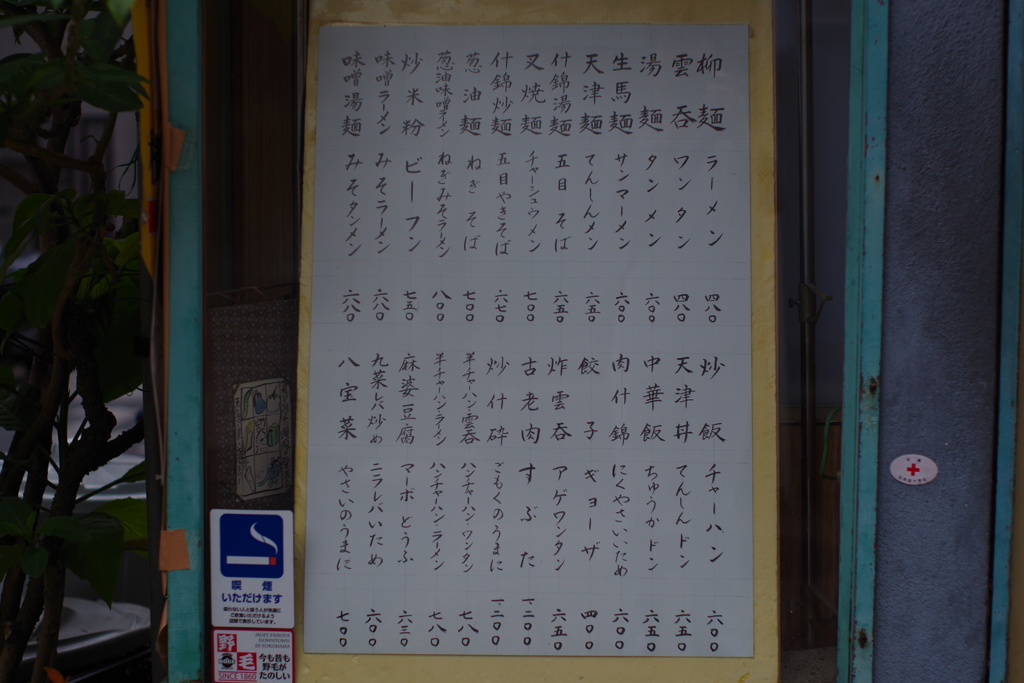 柳麺 ラーメン 四八〇
雲呑 ワンタン 四八〇
湯麺 タンメン 六〇〇
生馬麺 サンマーメン 六〇〇
天津麺 てんしんメン 六五〇
什錦湯麺 五目そば 六五〇
叉焼麺 チャーシュウメン 七〇〇
什錦炒麺 五目やきそば 六七〇
葱油麺 ねぎそば 七〇〇
葱油味噌ラーメン ねぎみそラーメン 八〇〇
炒米粉 ビーフン 七五〇
味噌ラーメン みそラーメン 六八〇
味噌湯麺 みそタンメン 六八〇
炒飯 チャーハン 六〇〇
天津丼 てんしんドン 六五〇
中華飯 ちゅうかドン 六五〇
肉什錦 にくやさいいため 六〇〇
餃子 ギョーザ 四〇〇
炸雲呑 アゲワンタン 六五〇
古老肉 すぶた 一二〇〇
炒什砕 ごもくのうまに 一二〇〇
半チャーハン雲呑 ハンチャーハンワンタン 七八〇
半チャーハンラーメン ハンチャーハンラーメン 七八〇
麻婆豆腐 マーボどうふ 六三〇
九菜レバ炒め ニラレバいため 六〇〇
八宝菜 やさいのうまに 七〇〇
喫煙
いただけます
吸わない人と吸う人が快適に
ご飲食いただけるよう
店頭で表示しています。
野毛
SINCE 1860
MOST FAMOUS
DOWNTOWN
OF YOKOHAMA
今も昔も
野毛が
たのしい